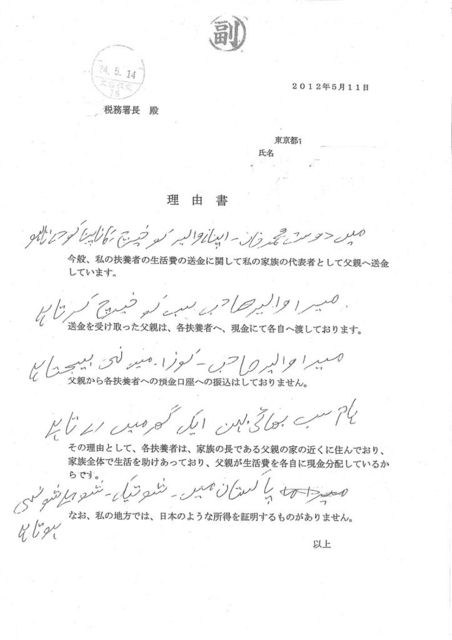 副
24.5.14
2012年5月11日
税務署長 殿
東京都
氏名
理由書
میں دوست محمد خان - اپنا والد کو خرچ کا
今般、私の扶養者の生活費の送金に関して私の家族の代表者として父親へ送金
しています。
میرا والد صاحب سب کو خرچ کرتا ہے
送金を受け取った父親は、各扶養者へ、現金にて各自へ渡しております。
میرا والد صاحب - نہی بیجتا ہے
父親から各扶養者への預金口座への振込はしておりません。
ہام سب بھائی بہن ایک گر میں رے تا ہے
その理由として、各扶養者は、家族の長である父親の家の近くに住んでおり、
家族全体で生活を助けあっており、父親が生活費を各自に現金分配しているか
らです。
پاکستان میں - نہی
なお、私の地方では、日本のような所得を証明するものがありません。
ہوتا ہے
以上